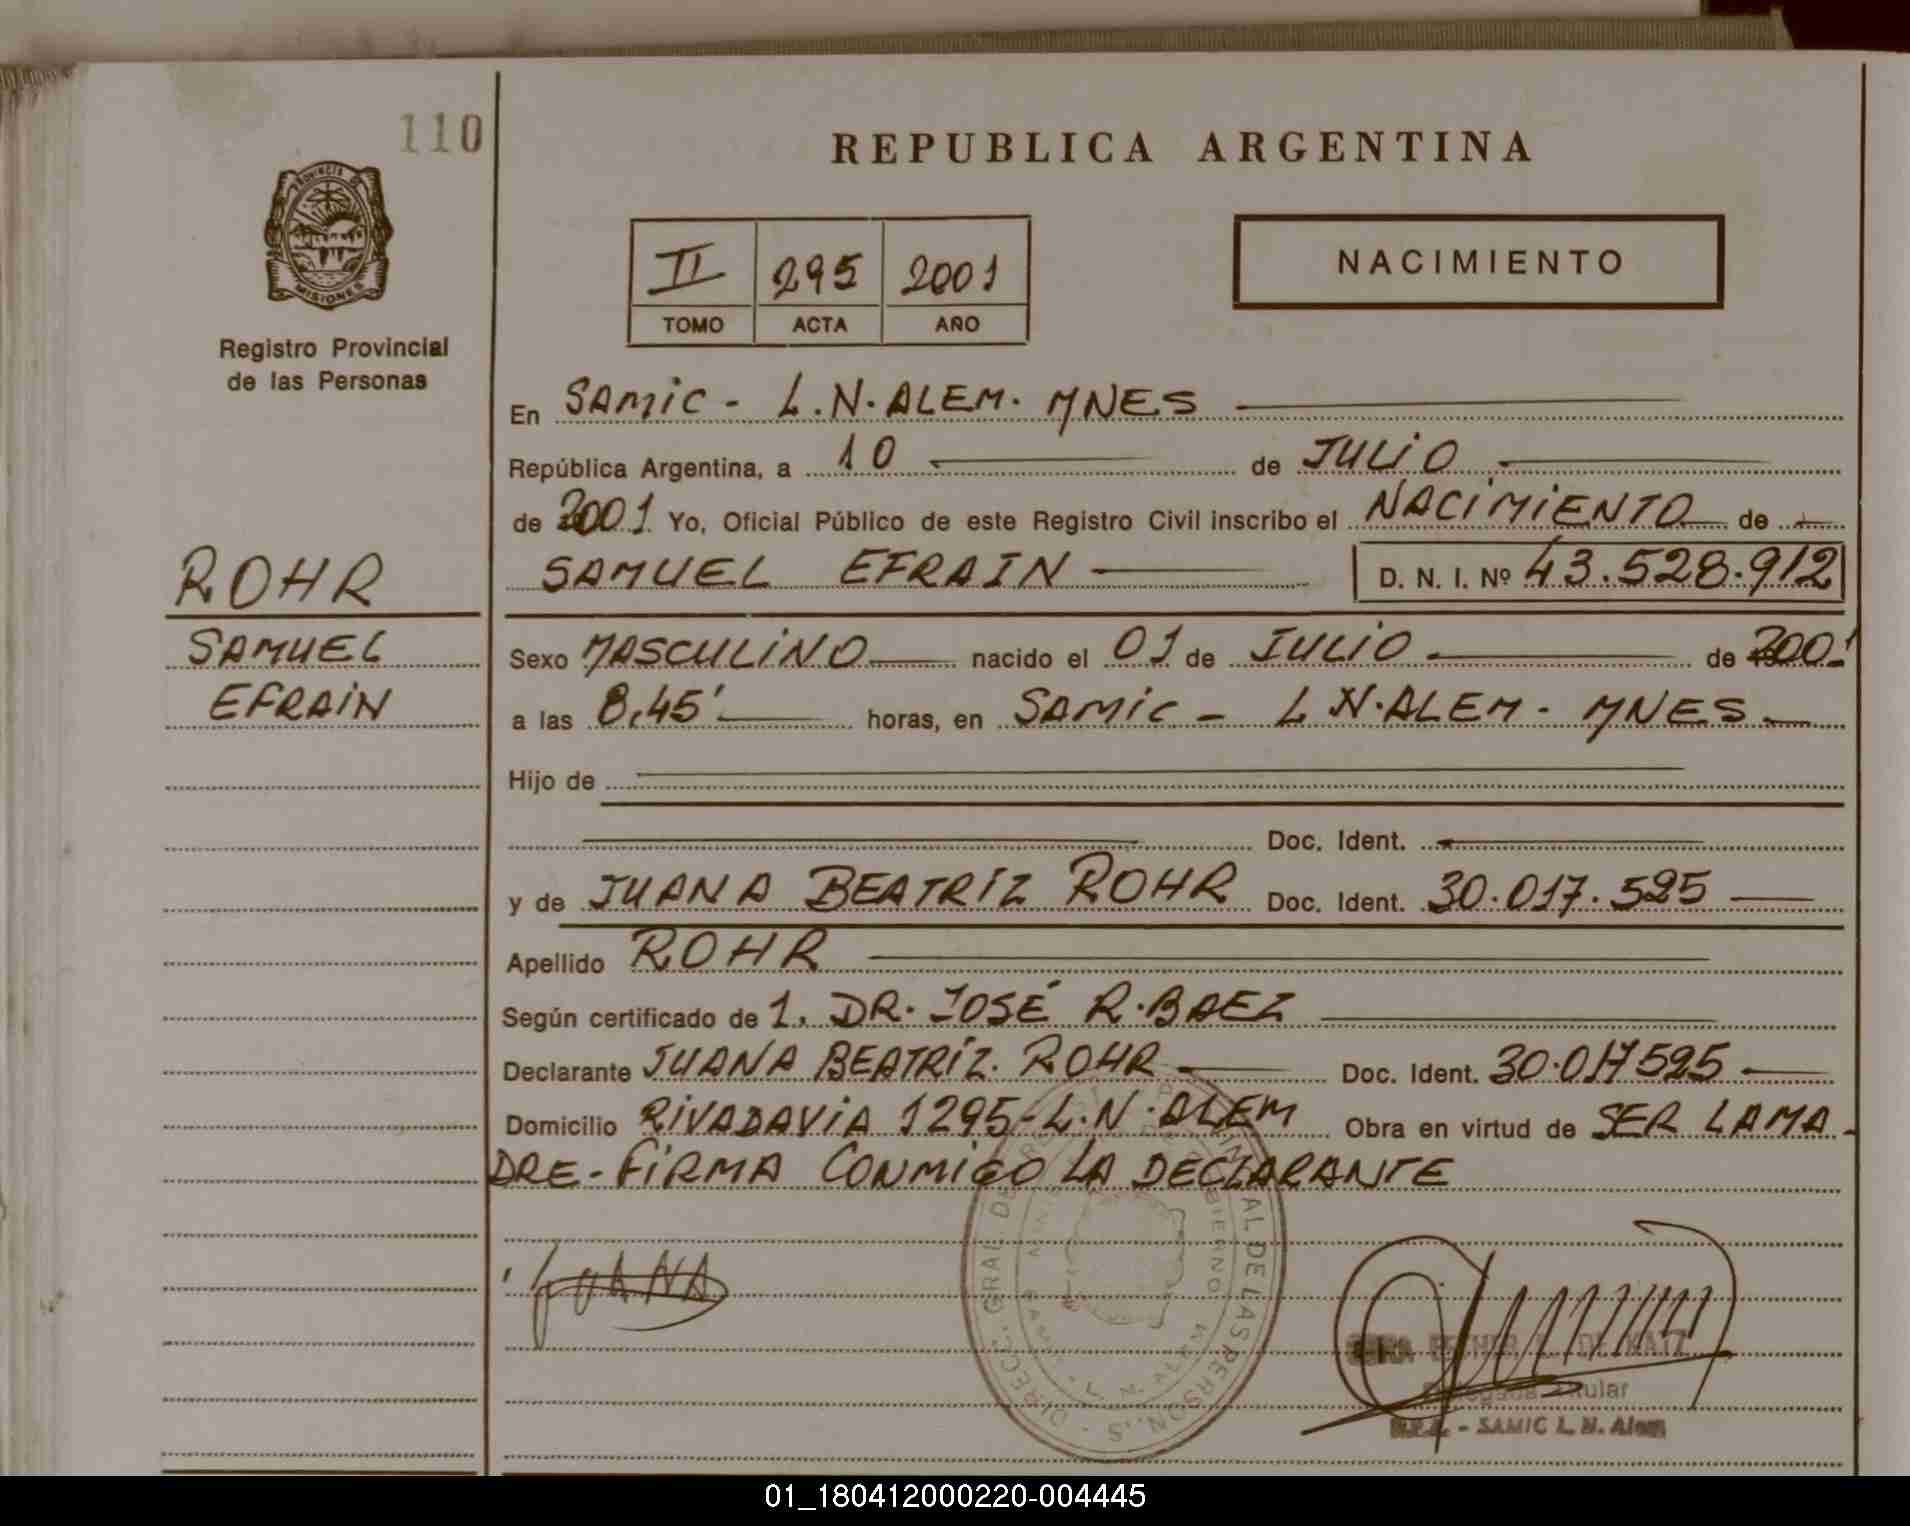 110
REPUBLICA ARGENTINA
PROVINCIA DE MISIONES
Registro Provincial
de las Personas
II 295 2001
TOMO ACTA AÑO
NACIMIENTO
En SAMIC - L.N. ALEM. MNES
República Argentina, a 10 de JULIO
de 2001 Yo, Oficial Público de este Registro Civil inscribo el NACIMIENTO de
SAMUEL EFRAIN D. N. I. Nº 43.528.912
ROHR
SAMUEL
EFRAIN
Sexo MASCULINO nacido el 01 de JULIO de 2001
a las 8,45' horas, en SAMIC - L N. ALEM - MNES
Hijo de
Doc. Ident.
y de JUANA BEATRIZ ROHR Doc. Ident. 30.017.525
Apellido ROHR
Según certificado de 1. DR. JOSÉ R. BAEZ
Declarante JUANA BEATRIZ. ROHR Doc. Ident. 30.017525
Domicilio RIVADAVIA 1295-L.N. ALEM Obra en virtud de SER LA MA-
DRE - FIRMA CONMIGO LA DECLARANTE
JUANA
DE KATZ
Delegada Titular
SAMIC L. N. Alem
01_180412000220-004445